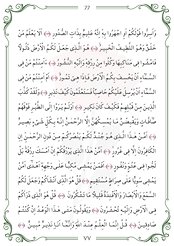 77
وَأَسِرُّوا قَوْلَكُمْ أَوِ اجْهَرُوا بِهِ إِنَّهُ عَلِيمٌ بِذَاتِ الصُّدُورِ أَلَا يَعْلَمُ مَنْ
خَلَقَ وَهُوَ اللَّطِيفُ الْخَبِيرُ هُوَ الَّذِي جَعَلَ لَكُمُ الْأَرْضَ ذَلُولًا
فَامْشُوا فِي مَنَاكِبِهَا وَكُلُوا مِنْ رِزْقِهِ وَإِلَيْهِ النُّشُورُ أَأَمِنْتُمْ مَنْ فِي
السَّمَاءِ أَنْ يَخْسِفَ بِكُمُ الْأَرْضَ فَإِذَا هِيَ تَمُورُ أَمْ أَمِنْتُمْ مَنْ فِي
السَّمَاءِ أَنْ يُرْسِلَ عَلَيْكُمْ حَاصِبًا فَسَتَعْلَمُونَ كَيْفَ نَذِيرِ وَلَقَدْ كَذَّبَ
الَّذِينَ مِنْ قَبْلِهِمْ فَكَيْفَ كَانَ نَكِيرِ أَوَلَمْ يَرَوْا إِلَى الطَّيْرِ فَوْقَهُمْ
صَافَّاتٍ وَيَقْبِضْنَ مَا يُمْسِكُهُنَّ إِلَّا الرَّحْمَنُ إِنَّهُ بِكُلِّ شَيْءٍ بَصِيرٌ
أَمَّنْ هَذَا الَّذِي هُوَ جُنْدٌ لَكُمْ يَنْصُرُكُمْ مِنْ دُونِ الرَّحْمَنِ إِنِ
الْكَافِرُونَ إِلَّا فِي غُرُورٍ أَمَّنْ هَذَا الَّذِي يَرْزُقُكُمْ إِنْ أَمْسَكَ رِزْقَهُ بَلْ
لَجُّوا فِي عُتُوٍّ وَنُفُورٍ أَفَمَنْ يَمْشِي مُكِبًّا عَلَى وَجْهِهِ أَهْدَى أَمَّنْ
يَمْشِي سَوِيًّا عَلَى صِرَاطٍ مُسْتَقِيمٍ قُلْ هُوَ الَّذِي أَنْشَأَكُمْ وَجَعَلَ لَكُمُ
السَّمْعَ وَالْأَبْصَارَ وَالْأَفْئِدَةَ قَلِيلًا مَا تَشْكُرُونَ قُلْ هُوَ الَّذِي ذَرَأَكُمْ
فِي الْأَرْضِ وَإِلَيْهِ تُحْشَرُونَ وَيَقُولُونَ مَتَى هَذَا الْوَعْدُ إِنْ كُنْتُمْ
صَادِقِينَ قُلْ إِنَّمَا الْعِلْمُ عِنْدَ اللَّهِ وَإِنَّمَا أَنَا نَذِيرٌ مُبِينٌ
٧٧